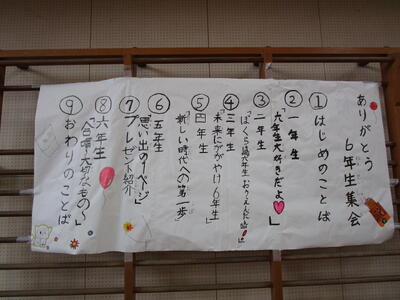 ありがとう
6年生集会
①はじめのことば
②一年生
「六年生大好きだよ」
③二年生
④三年生
「未来にかがやけ6年生」
⑤四年生
「新しい時代への第一歩」
⑥五年生
「思い出の1ページ」
⑦プレゼント紹介
⑧六年生
〈合唱・大切なもの〜〉
⑨おわりのことば